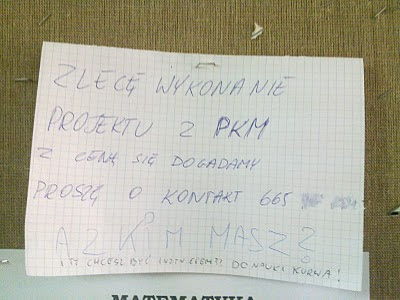 ZLECĘ WYKONANIE
PROJEKTU Z PKM
Z CENĄ SIĘ DOGADAMY
PROSZĘ O KONTAKT 665
A Z KIM MASZ?
I TY CHCESZ BYĆ DO NAUKI KURWA!
MATEMATYKA